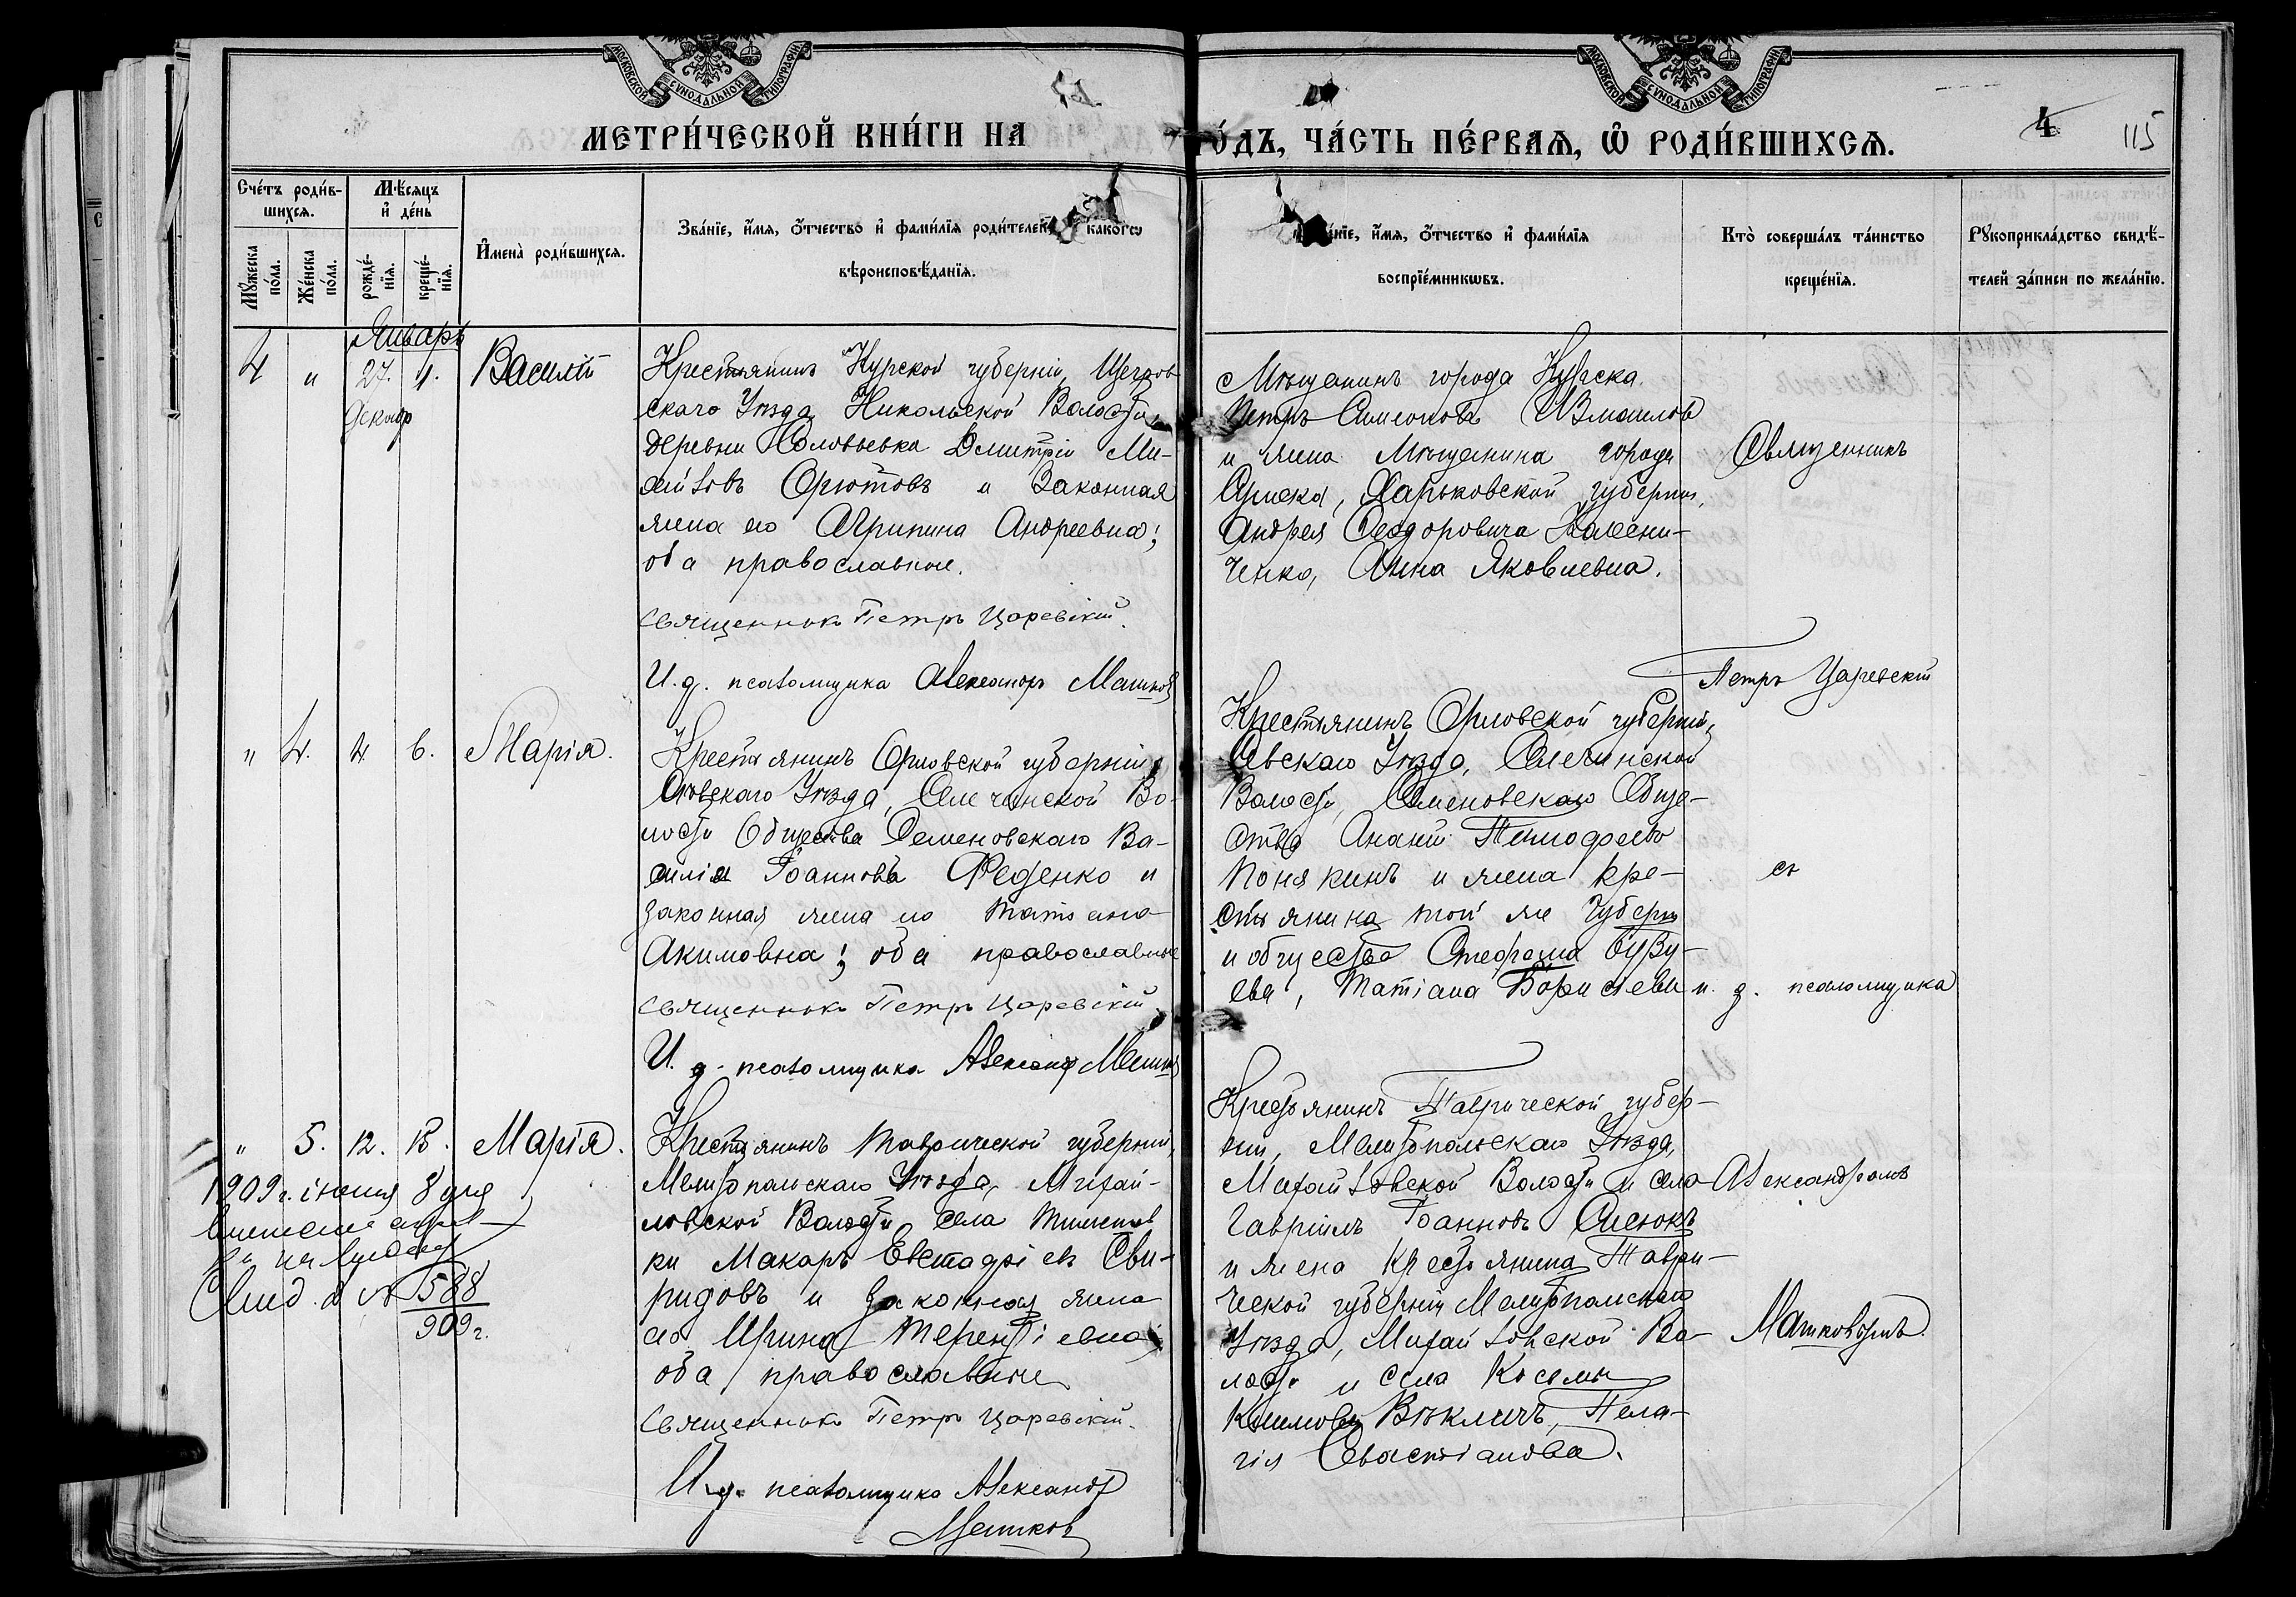 МОСКОВСКОЙ СѴНОДАЛЬНОЙ ТИПОГРАФІИ
МОСКОВСКОЙ СѴНОДАЛЬНОЙ ТИПОГРАФІИ
МЕТРИ́ЧЕСКОЙ КНИ́ГИ НА
ГО́ДЪ, ЧА́СТЬ ПЕ́РВАЯ, Ѡ҆ РОДИ́ВШИХСЯ.
4
115
Сче́тъ роди́в-
шихся.
Мѣ́сяцъ
и҆ де́нь
Мꙋ́жеска по́ла.
Же́нска по́ла.
рожде́-
нїя.
креще́-
нїя.
И҆мена̀ роди́вшихся.
Зва́нїе, и҆́мя, ѻ҆́тчество и҆ фами́лїя роди́телей, и҆ како́гѡ
вѣроисповѣ́данїя.
Зва́нїе, и҆́мя, ѻ҆́тчество и҆ фами́лїя
воспрїе́мникѡвъ.
Кто̀ соверша́лъ та́инство
креще́нїя.
Рꙋкоприкла́дство свидѣ́-
телей за́писи по жела́нїю.
Январь
4 " 27. 1. Василій
Декабр
Крестьянинъ Курской губерніи, Щегров
скаго Уѣзда, Никольской Волости,
деревни Соловьевка Дмитрій Ми-
хайловъ Срютовъ и Законная
жена его Агрипина Андреевна;
оба православные.
Священникъ Петръ Царевскій.
И. д. псаломщика Александръ Машковъ
Мѣщанинъ города Курска
Петръ Симеоновъ Измаиловъ
и жена Мѣщанина города
Харьковской губерніи,
Андрея Ѳеодоровича Калени-
ченко, Анна Яковлевна.
Священникъ
Петръ Царевскій
" 4. 4. 6. Марія.
Крестьянинъ Орловской губерніи,
Сѣвскаго Уѣзда, Селечинской Во-
лости Общества Семеновскаго Ва-
силій Іоанновъ Феденко и
законная жена его Татіана
Акимовна; оба православные
Священникъ Петръ Царевскій
И. д. псаломщика Александръ Машковъ
Крестьянинъ Орловской губерніи,
Сѣвскаго Уѣзда, Селечинской
Волости, Семеновскаго Обще-
ства Ананій
Понякинъ и жена кре-
стьянина той же Губерніи
и общества Стефана Бузу-
ева, Татіана Борисіева
съ
и. д. псаломщика
" 5. 12. 13. Марія.
Крестьянинъ Таврической губерніи,
Мелитопольскаго Уѣзда, Михай-
ловской Волости, села Тимошов
ки Макаръ Евстафіевъ Сви-
ридовъ и Законная жена
его Ирина Терентіевна;
оба православные
Священникъ Петръ Царевскій.
И. д. псаломщика Александръ
Машковъ
1909 г. іюня 8 дня
Свид. д. № 588
909 г.
Крестьянинъ Таврической губер-
ніи, Мелитопольскаго Уѣзда,
Михайловской Волости и села
Гавріилъ Іоанновъ Слесюкъ
и жена Крестьянина Таври-
ческой губерніи Мелитопольскаго
Уѣзда, Михайловской Во-
лости и села Косьмы
Климова Вѣкличъ, Пела-
гія Севастіанова.
Александромъ
Машковымъ.